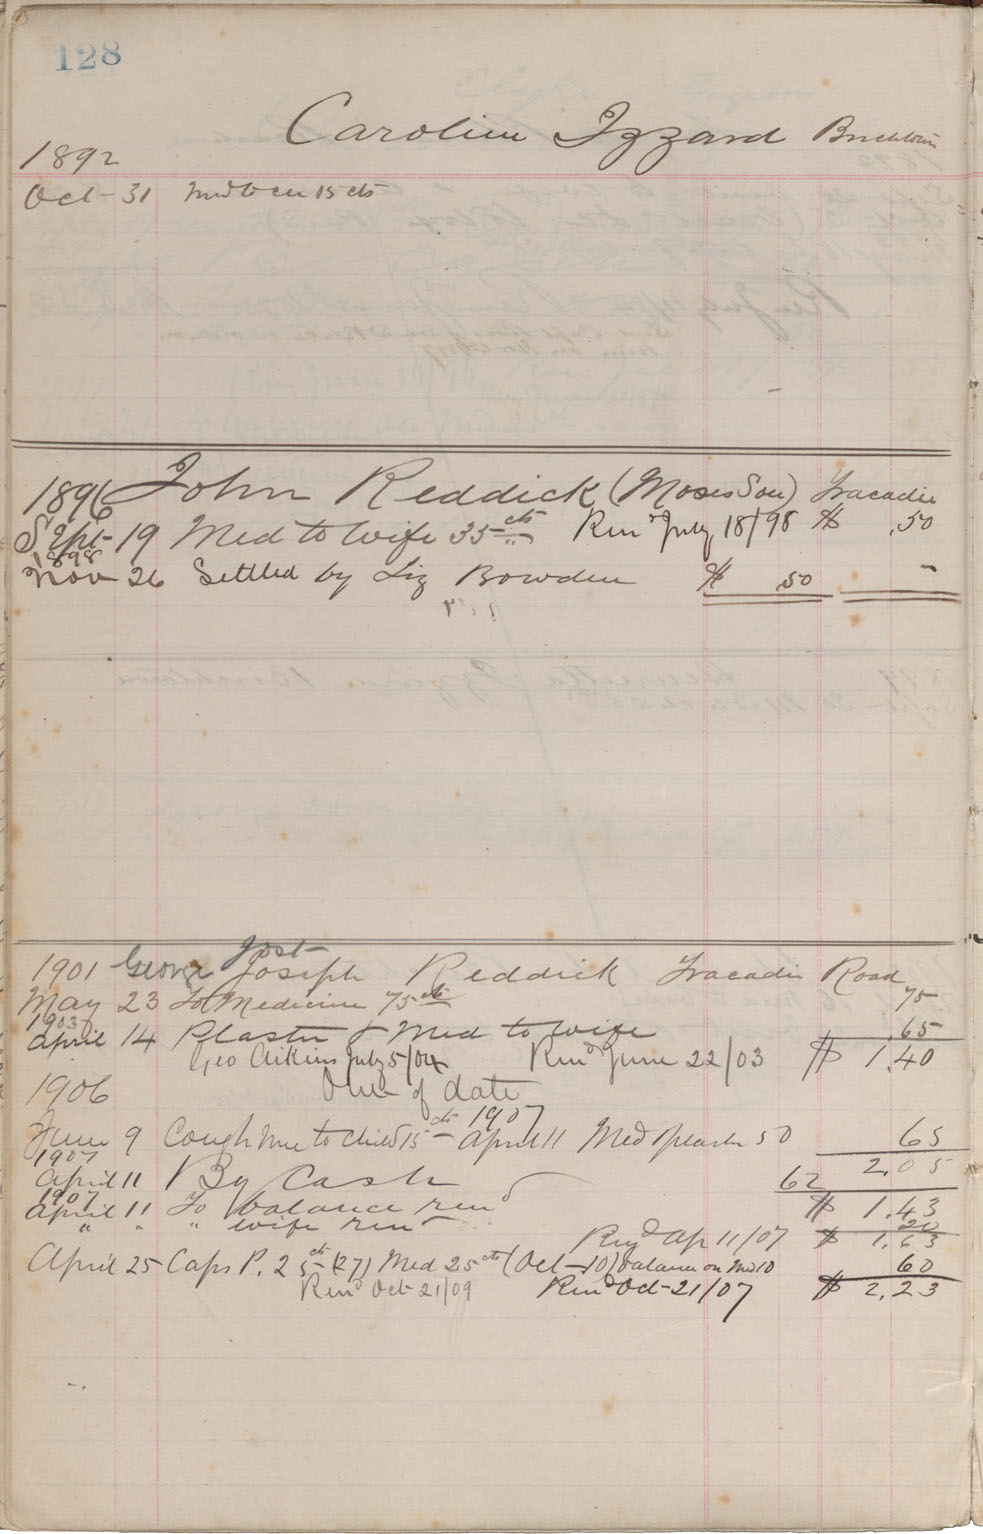 128
Caroline Izzard Birchtown
1892
Oct 31 Med to 15 cts
1896 John Reddick (Moses Son) Tracadie
Sept 19 Med to wife 35 cts Rend July 18/98 $ .50
1898
Nov 26 Settled by Liz Bowden $ .50 -
Jost
1901 George Joseph Reddick Tracadie Road
May 23 To Medicine 75 cts 75
1903
April 14 Plaster & Med to wife .65
Geo Aikins July 5/04 Rend June 22/03 $ 1.40
1906 Out of date
June 9 Cough mre to child 15 cts 1907 April 11 Med & plaster 50 65
2.05
1907
April 11 By Cash 62
1907
April 11 To balance rend $ 1.43
" " " wife 20
Rend Ap 11/07 $ 1.63
April 25 Caps P. 25 cts (27) Med 25 cts (Oct 10) balance on Med 10 60
Rend Oct 21/09 Rend Oct 21/07 $ 2.23